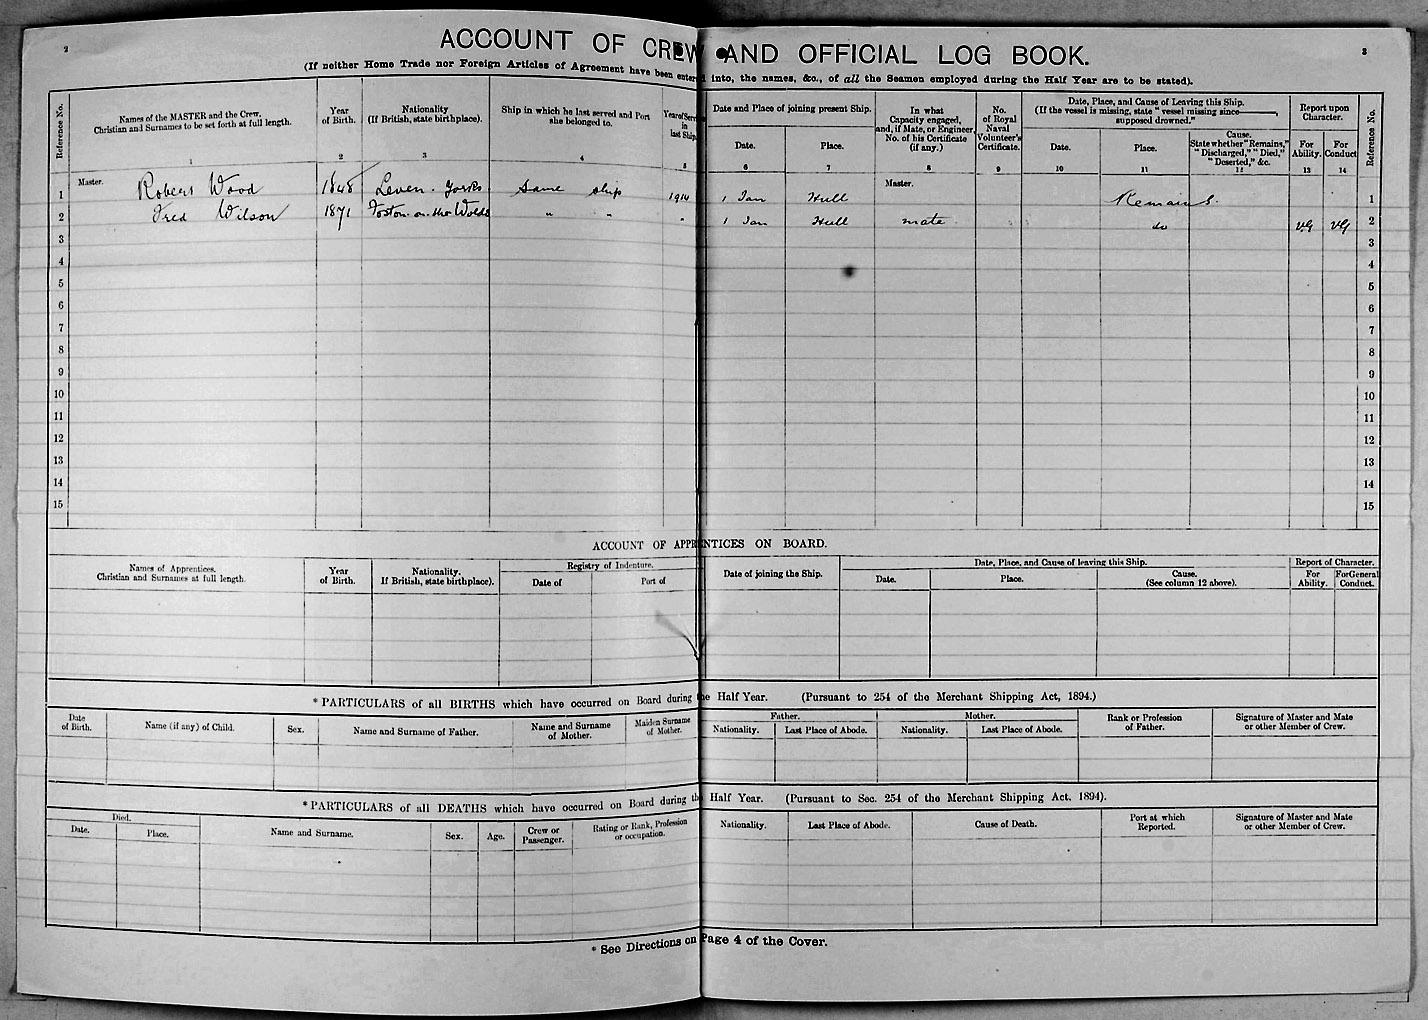 2
3
ACCOUNT OF CREW AND OFFICIAL LOG BOOK.
(If neither Home Trade nor Foreign Articles of Agreement have been entered into, the names, &c., of all the Seamen employed during the Half Year are to be stated).
Reference No.
Names of the MASTER and the Crew.
Christian and Surnames to be set forth at full length.
1
Year
of Birth.
2
Nationality
(If British, state birthplace).
3
Ship in which he last served and Port
she belonged to.
4
Year of Service
in
last Ship.
5
Date and Place of joining present Ship.
Date.
6
Place.
7
In what
Capacity engaged,
and, if Mate, or Engineer,
No. of his Certificate
(if any.)
8
No.
of Royal
Naval
Volunteer's
Certificate.
9
Date, Place, and Cause of Leaving this Ship.
(If the vessel is missing, state "vessel missing since———,
supposed drowned."
Date.
10
Place.
11
Cause.
State whether "Remains,"
"Discharged," "Died,"
"Deserted," &c.
12
Report upon
Character.
For
Ability.
13
For
Conduct
14
Reference No.
1 Master. Robert Wood 1848 Leven. Yorks. Same ship 1914 1 Jan Hull Master. Remains. 1
2 Fred Wilson 1871 Foston-on-the-Wolds " " " 1 Jan Hull mate do VG VG 2
3 3
4 4
5 5
6 6
7 7
8 8
9 9
10 10
11 11
12 12
13 13
14 14
15 15
ACCOUNT OF APPRENTICES ON BOARD.
Names of Apprentices.
Christian and Surnames at full length.
Year
of Birth.
Nationality.
If British, state birthplace).
Registry of Indenture.
Date of
Port of
Date of joining the Ship.
Date, Place, and Cause of leaving this Ship.
Date.
Place.
Cause.
(See column 12 above).
Report of Character.
For
Ability.
For General
Conduct.
* PARTICULARS of all BIRTHS which have occurred on Board during the Half Year. (Pursuant to 254 of the Merchant Shipping Act, 1894.)
Date
of Birth.
Name (if any) of Child.
Sex.
Name and Surname of Father.
Name and Surname
of Mother.
Maiden Surname
of Mother.
Father.
Nationality.
Last Place of Abode.
Mother.
Nationality.
Last Place of Abode.
Rank or Profession
of Father.
Signature of Master and Mate
or other Member of Crew.
* PARTICULARS of all DEATHS which have occurred on Board during the Half Year. (Pursuant to Sec. 254 of the Merchant Shipping Act, 1894).
Died.
Date.
Place.
Name and Surname.
Sex.
Age.
Crew or
Passenger.
Rating or Rank, Profession
or occupation.
Nationality.
Last Place of Abode.
Cause of Death.
Port at which
Reported.
Signature of Master and Mate
or other Member of Crew.
* See Directions on Page 4 of the Cover.